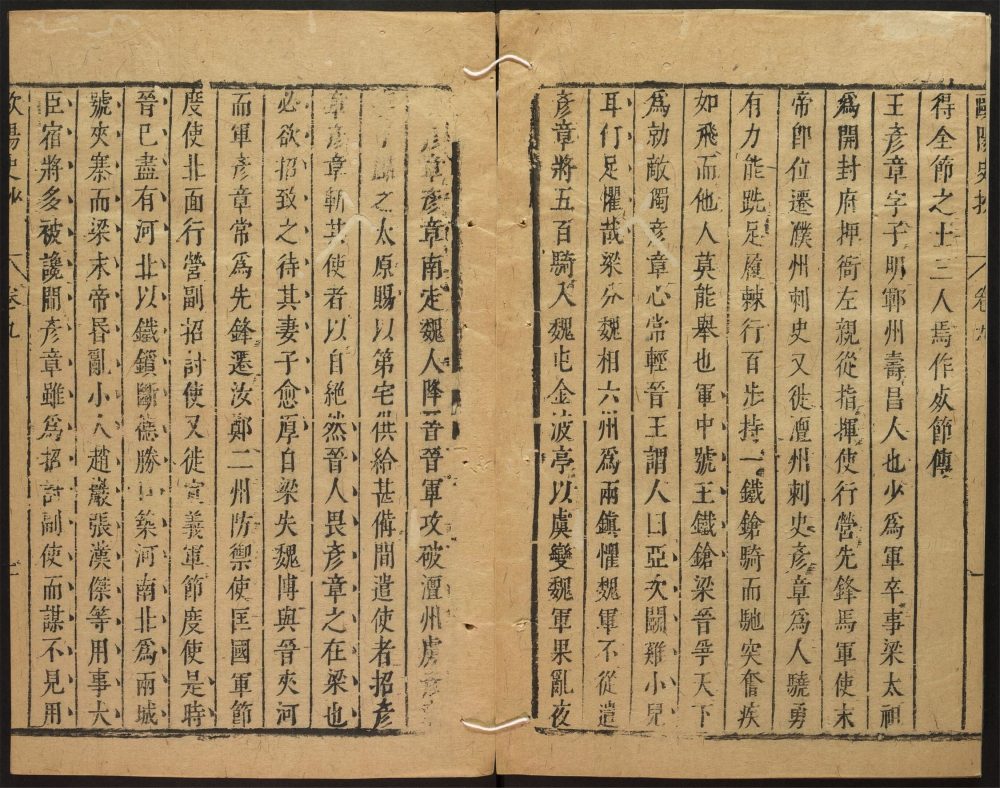 歐陽史抄 卷九 一
得全節之士三人焉作死節傳
王彥章字子明鄆州壽昌人也少為軍卒事梁太祖
為開封府押衙左親從指揮使行營先鋒馬軍使末
帝即位遷濮州刺史又徙澶州刺史彥章為人驍勇
有力能跣足履棘行百步持一鐵鎗騎而馳突奮疾
如飛而他人莫能舉也軍中號王鐵鎗梁晉爭天下
為勍敵獨彥章心常輕晉王謂人曰亞次鬭雞小兒
耳何足懼哉梁分魏相六州為兩鎮懼魏軍不從遣
彥章將五百騎入魏屯金波亭以虞變魏軍果亂夜
彥章彥章南走魏人降晉晉軍攻破澶州虜彥
之太原賜以第宅供給甚備間遣使者招彥
章彥章斬其使者以自絕然晉人畏彥章之在梁也
必欲招致之待其妻子愈厚自梁失魏博與晉夾河
而軍彥章常為先鋒遷汝鄭二州防禦使匡國軍節
度使北面行營副招討使又徙宣義軍節度使是時
晉已盡有河北以鐵鎖斷德勝口築河南北為兩城
號夾寨而梁末帝昏亂小人趙巖張漢傑等用事大
臣宿將多被讒間彥章雖為招討副使而謀不見用
歐陽史抄 卷九